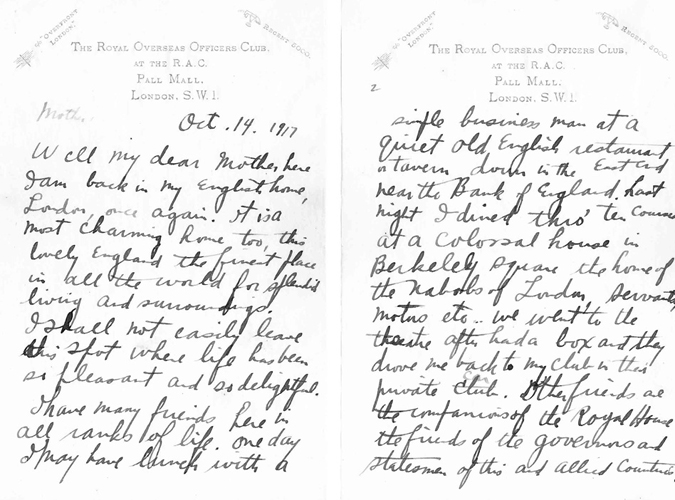 "OVERFRONT
LONDON."
REGENT 5000.
THE ROYAL OVERSEAS OFFICERS CLUB,
AT THE R.A.C.
PALL MALL,
LONDON, S.W.1.
Moth.
Oct. 14. 1917
Well my dear Mother, here
I am back in my English home,
London, once again. It is a
most charming home too, this
lovely England the finest place
in all the world for splendid
living and surroundings.
I shall not easily leave
this spot where life has been
so pleasant and so delightful.
I have many friends here in
all ranks of life. One day
I may have lunch with a
"OVERFRONT
LONDON."
REGENT 5000.
THE ROYAL OVERSEAS OFFICERS CLUB,
AT THE R.A.C.
PALL MALL,
LONDON, S.W.1.
2
simple business man at a
quiet old English restaurant
or tavern down in the East End
near the Bank of England. Last
night I dined thro' ten courses
at a colossal house in
Berkeley Square the home of
the Nabobs of London, servants
motors etc.. we went to the
theatre after had a box and they
drove me back to my club in their
private car. Other friends are
the companions of the Royal House
the friends of the governors and
statesmen of this and Allied Countries